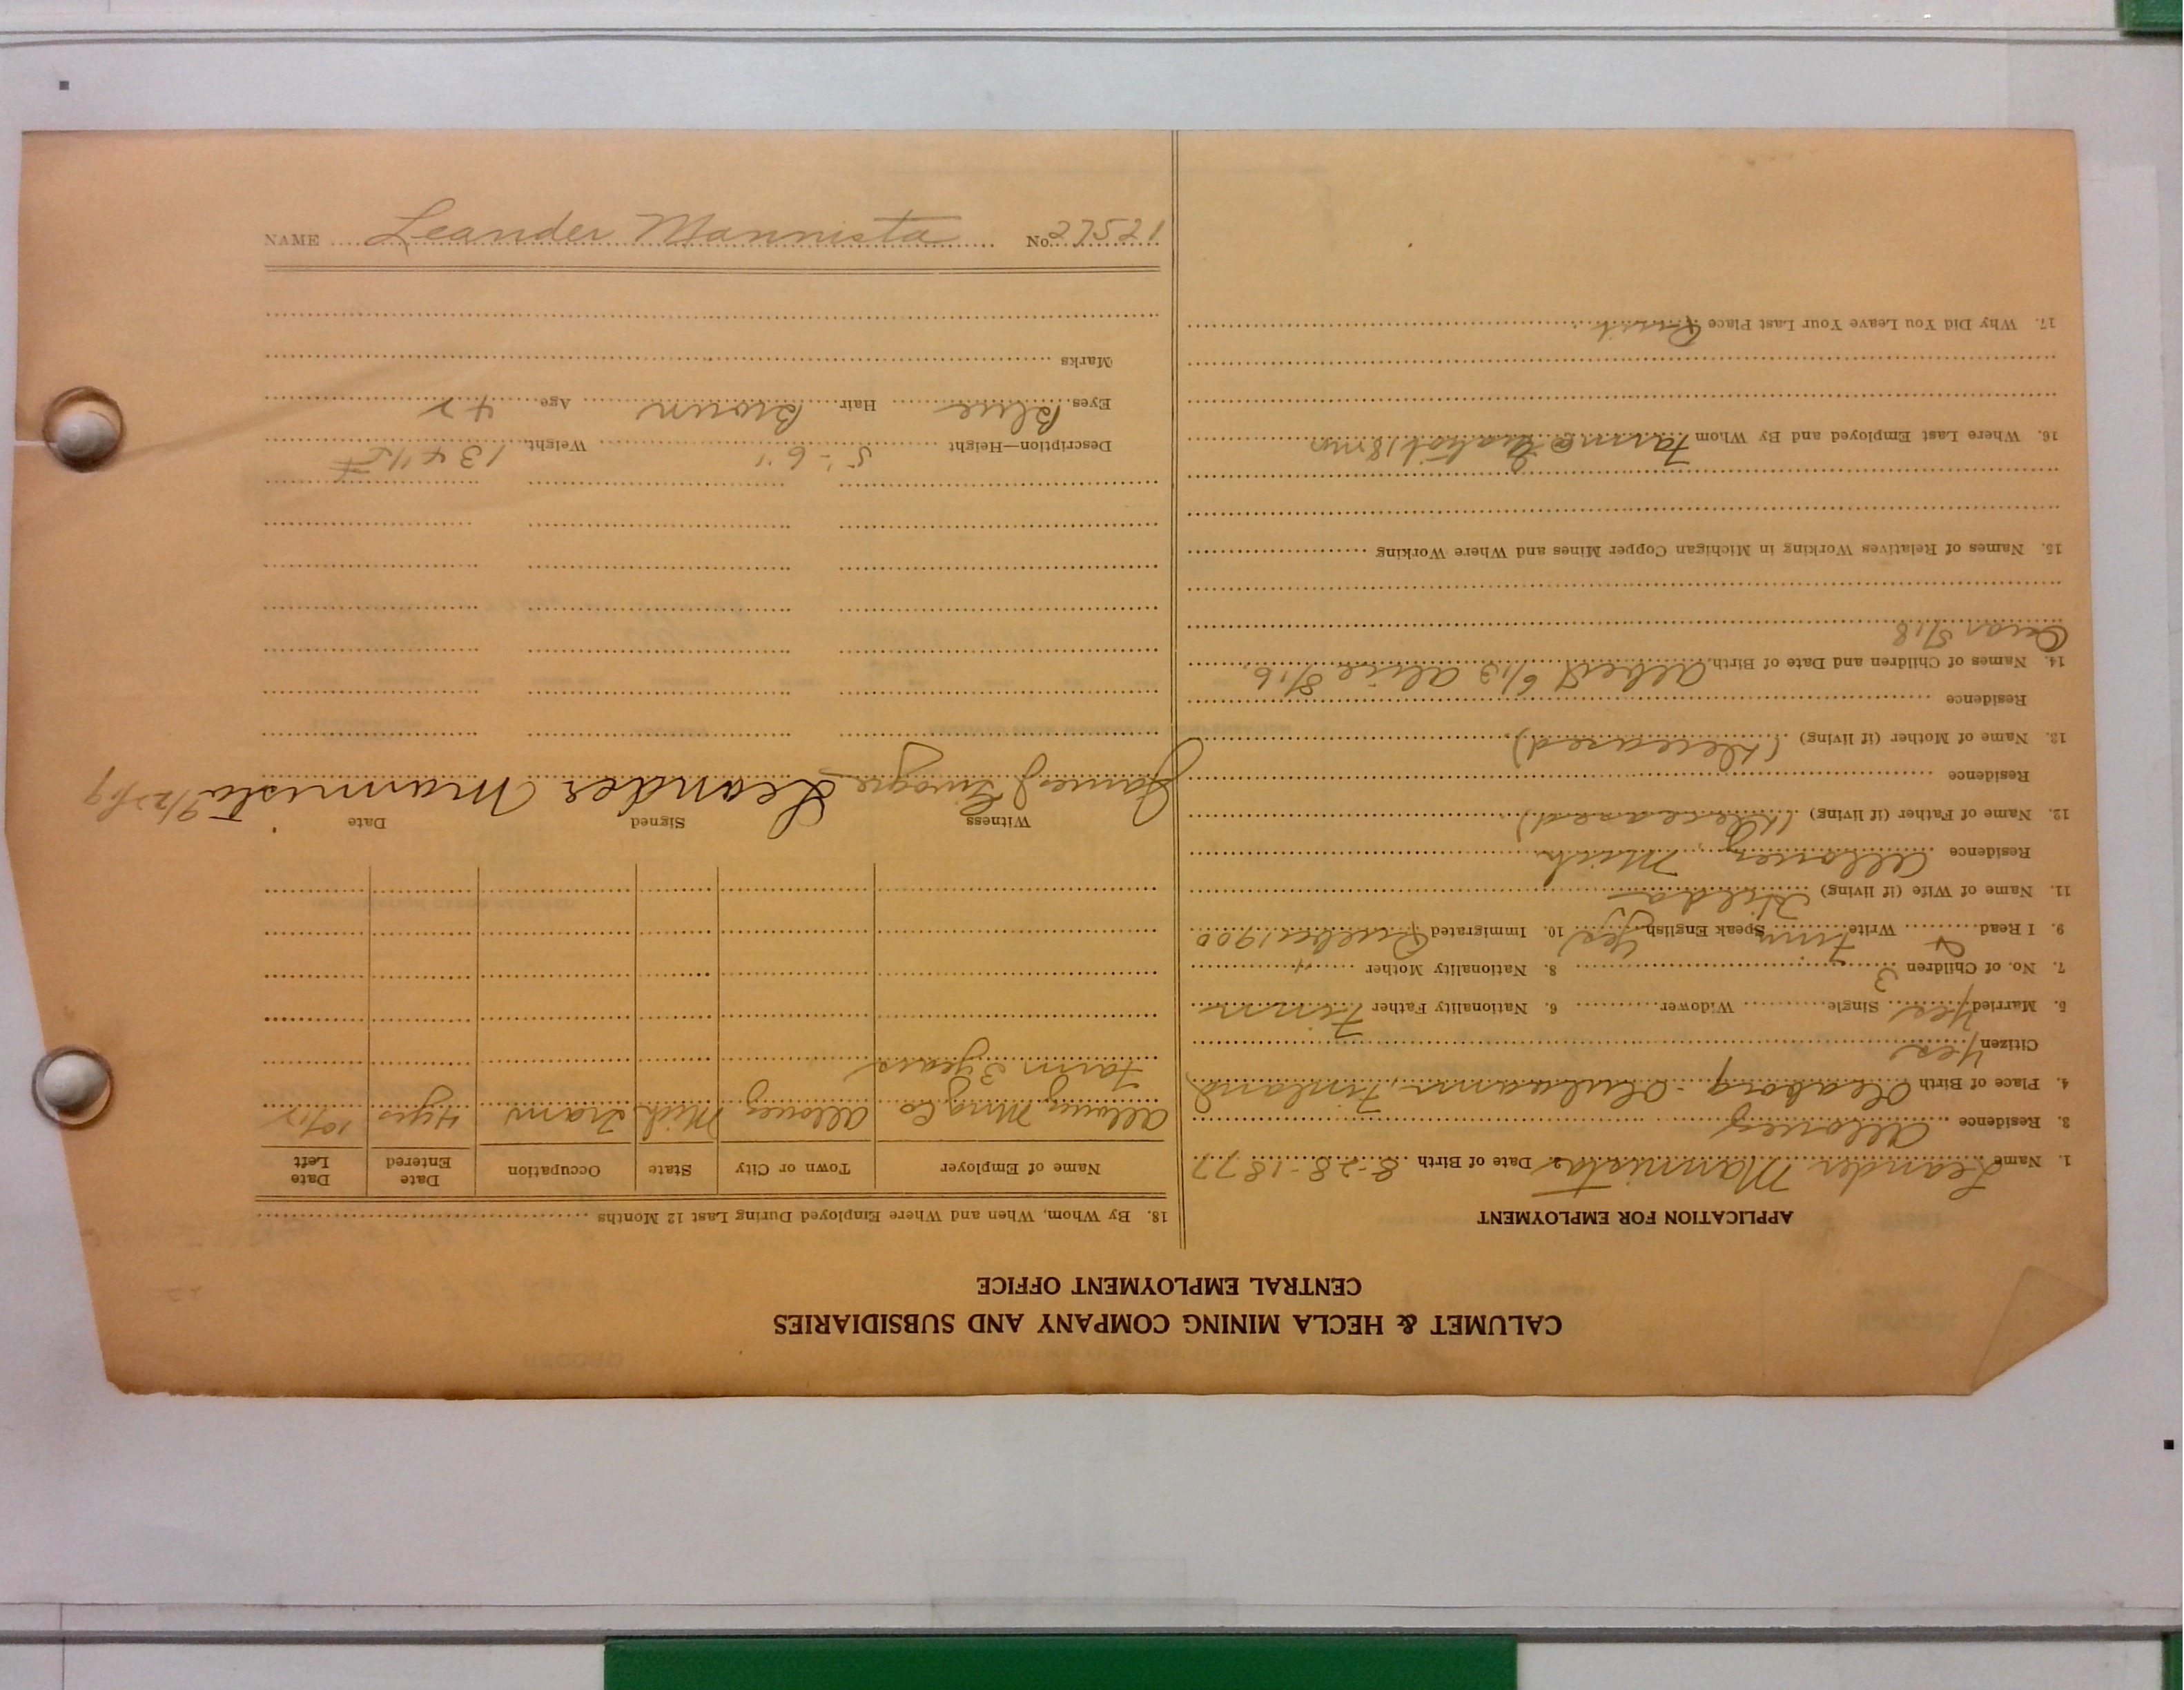 CALUMET & HECLA MINING COMPANY AND SUBSIDIARIES
CENTRAL EMPLOYMENT OFFICE
APPLICATION FOR EMPLOYMENT
1. Name Leander Mannisto 2. Date of Birth 8-28-1877
3. Residence Allouez
4. Place of Birth Finland
Citizen Yes
5. Married Yes Single Widower 6. Nationality Father Finn
7. No. of Children 3 8. Nationality Mother "
9. I Read & Write Finn Speak English Yes 10. Immigrated 1900
11. Name of Wife (if living) Hilda
Residence Allouez, Mich
12. Name of Father (if living) (Deceased)
Residence
13. Name of Mother (if living) (Deceased)
Residence
14. Names of Children and Date of Birth Albert 6/13 Alice 8/16
5/18
15. Names of Relatives Working in Michigan Copper Mines and Where Working
16. Where Last Employed and By Whom Farm @ 18 mos
17. Why Did You Leave Your Last Place Quit
18. By Whom, When and Where Employed During Last 12 Months
Name of Employer Town or City State Occupation Date Entered Date Left
Allouez Mng Co Allouez Mich Tram 4 yrs 10/17
Farm 3 years
Witness Signed Date
James Leander Mannisto 9/22/19
Description—Height 5'-6" Weight 134
Eyes Blue Hair Brown Age 42
Marks
NAME Leander Mannista No. 27521